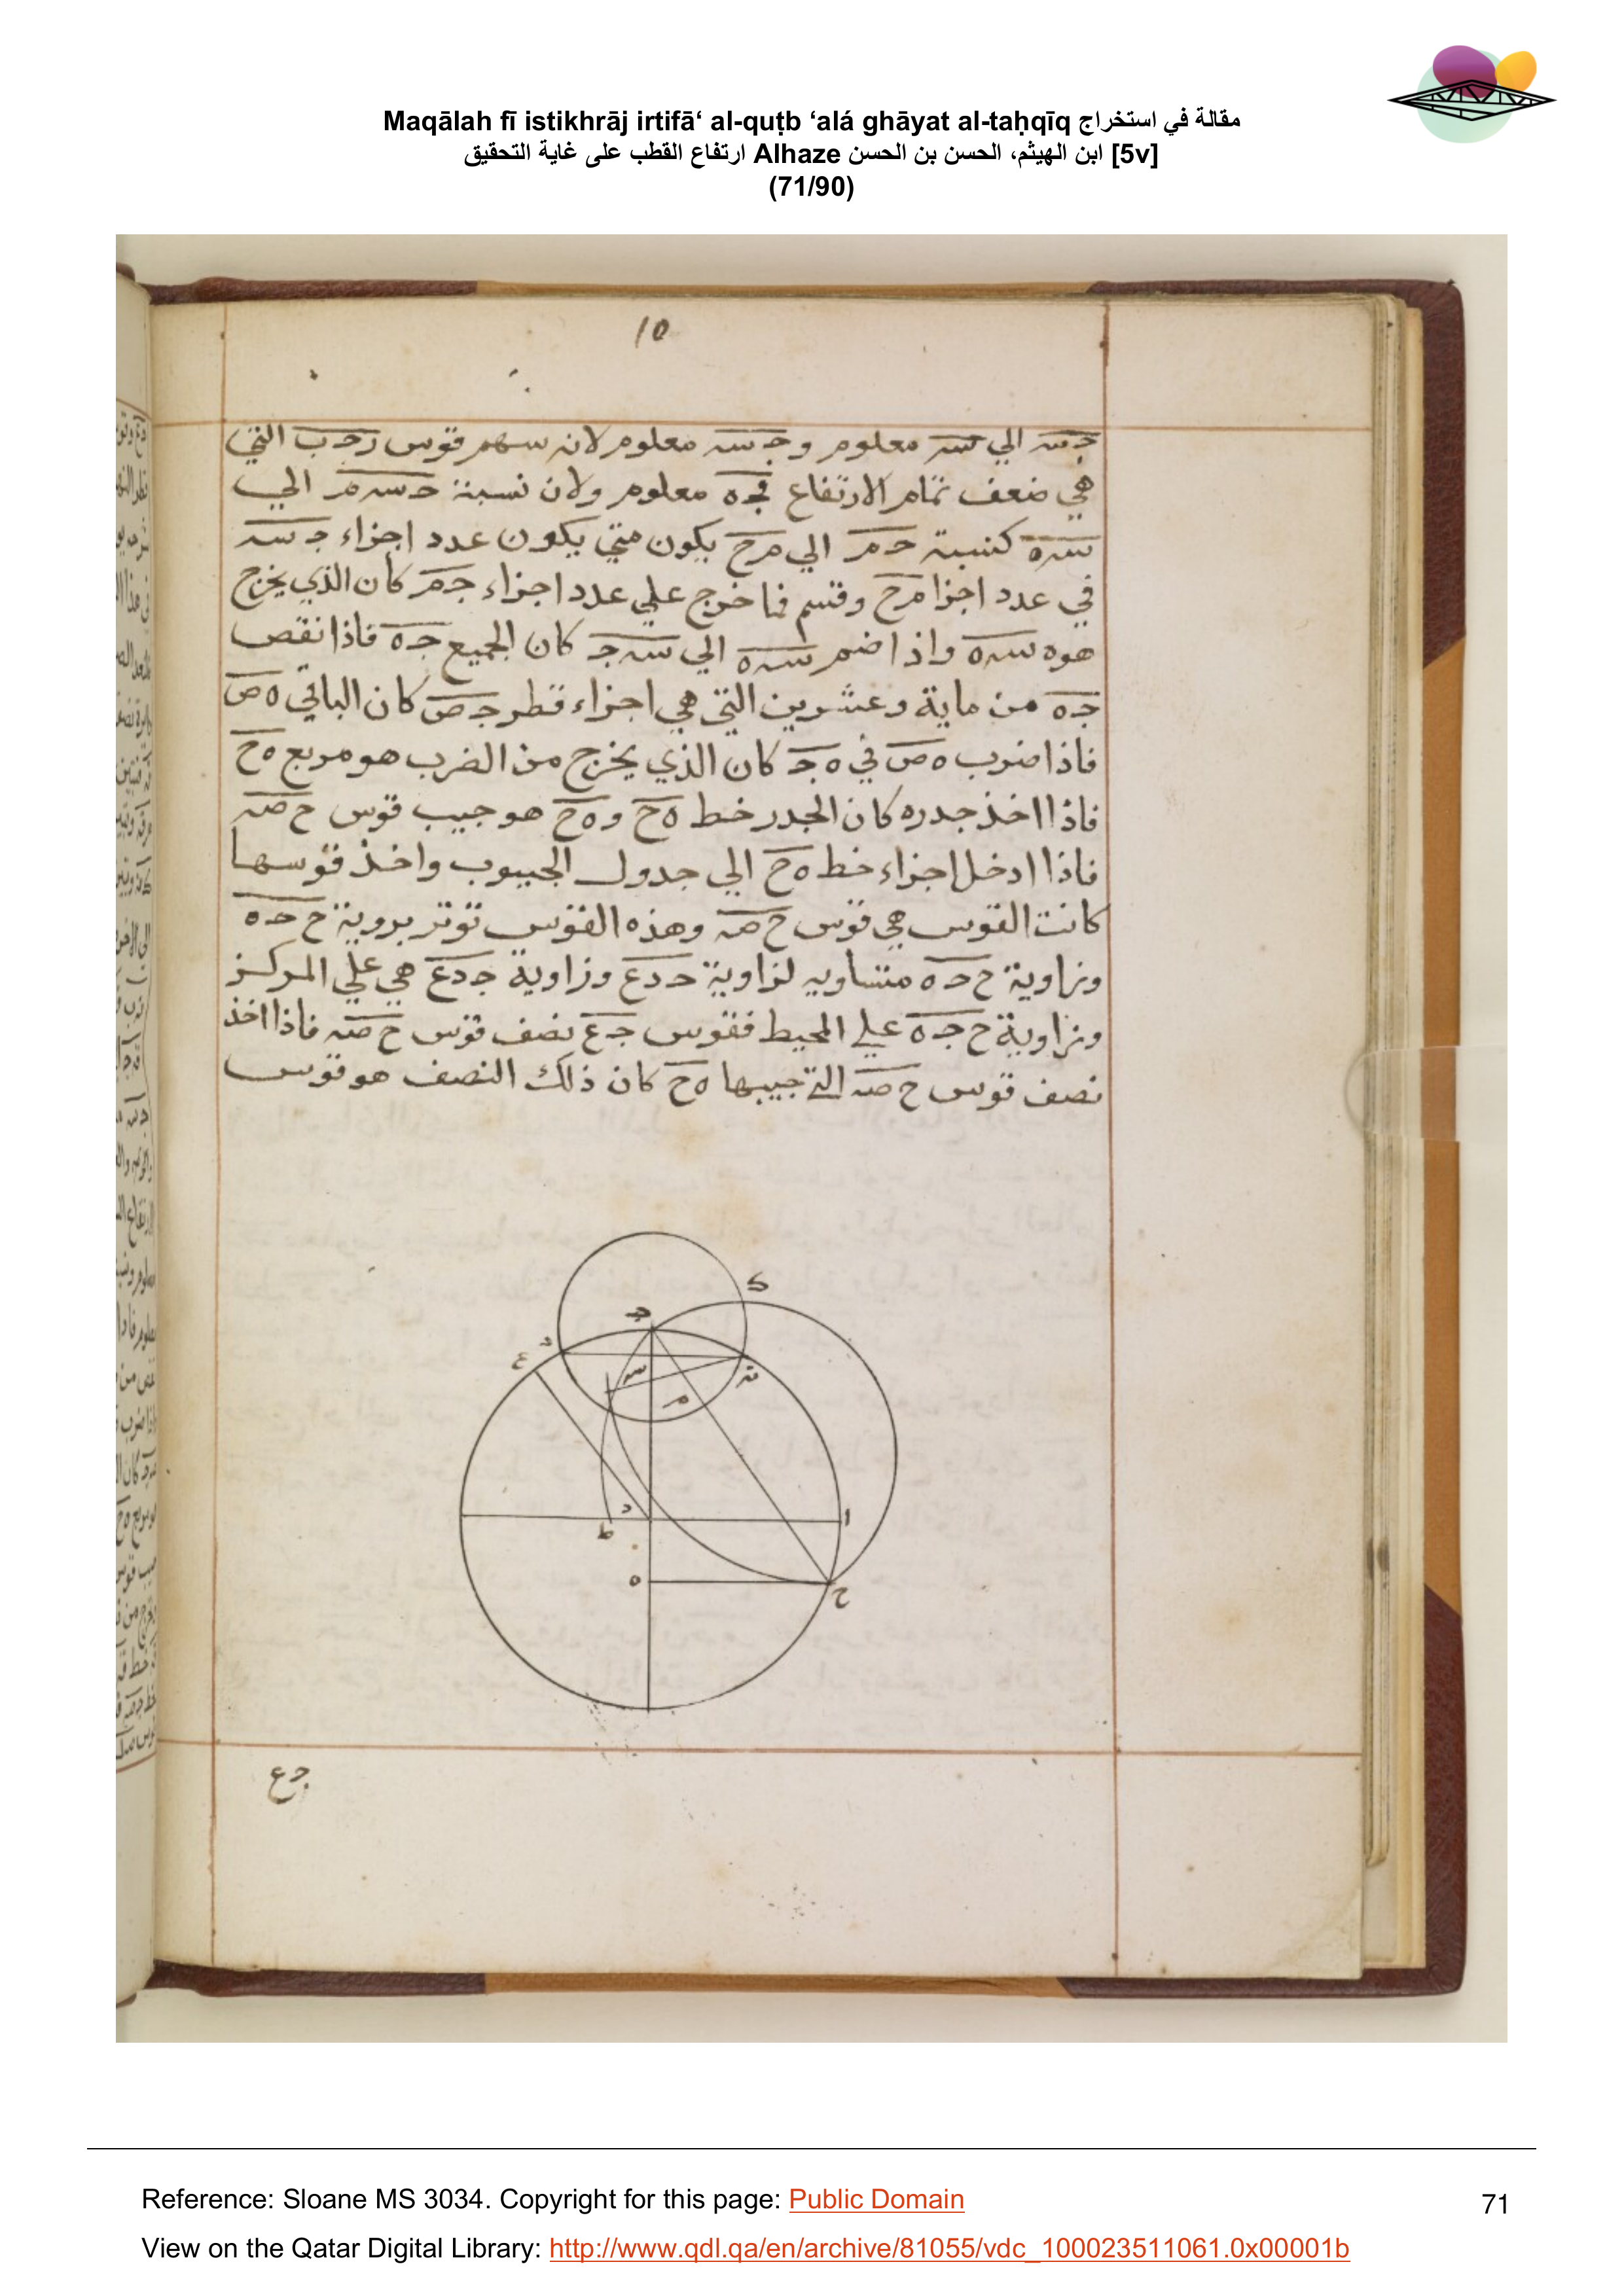 Maqālah fī istikhrāj irtifā‘ al-quṭb ‘alá ghāyat al-taḥqīq مقالة في استخراج
ارتفاع القطب على غاية التحقيق Alhaze ابن الهيثم، الحسن بن الحسن [5v]
(71/90)
10
جسه الي سه معلوم وجسه معلوم لانه سهم قوس رحب التي
هي ضعف تمام الارتفاع فجه معلوم ولان نسبة حسه مر الي
سه ه كنسبة حمر الي مرح يكون متي يكون عدد اجزاء جسه
في عدد اجزا مرح وقسم فما خرج علي عدد اجزاء جمر كان الذي يخرج
هوه سه ه واذا ضم سه ه الي سه ج كان الجميع جه فاذا نقص
جه من ماية وعشرين التي هي اجزاء قطر جص كان الباقي ه ص
فاذا ضرب ه ص في ه ج كان الذي يخرج من الضرب هو مربع ه ح
فاذا اخذ جدره كان الجدر خط ه ح و ه ح هو جيب قوس ح صه
فاذا ادخل اجزاء خط ه ح الي جدول الجيوب واخذ قوسها
كانت القوس هي قوس ح صه وهذه القوس توتر بروية ح حه
وزاوية ح حه متساويه لزاوية حدع وزاوية جدع هي علي المركز
وزاوية ح جه علي المحيط فقوس جع نصف قوس ح صه فاذا اخذ
نصف قوس ح صه التي جيبها ه ح كان ذلك النصف هو قوس
ج
ع
سه
م
د
ط
ا
ه
ح
جع
Reference: Sloane MS 3034. Copyright for this page: Public Domain
71
View on the Qatar Digital Library: http://www.qdl.qa/en/archive/81055/vdc_100023511061.0x00001b